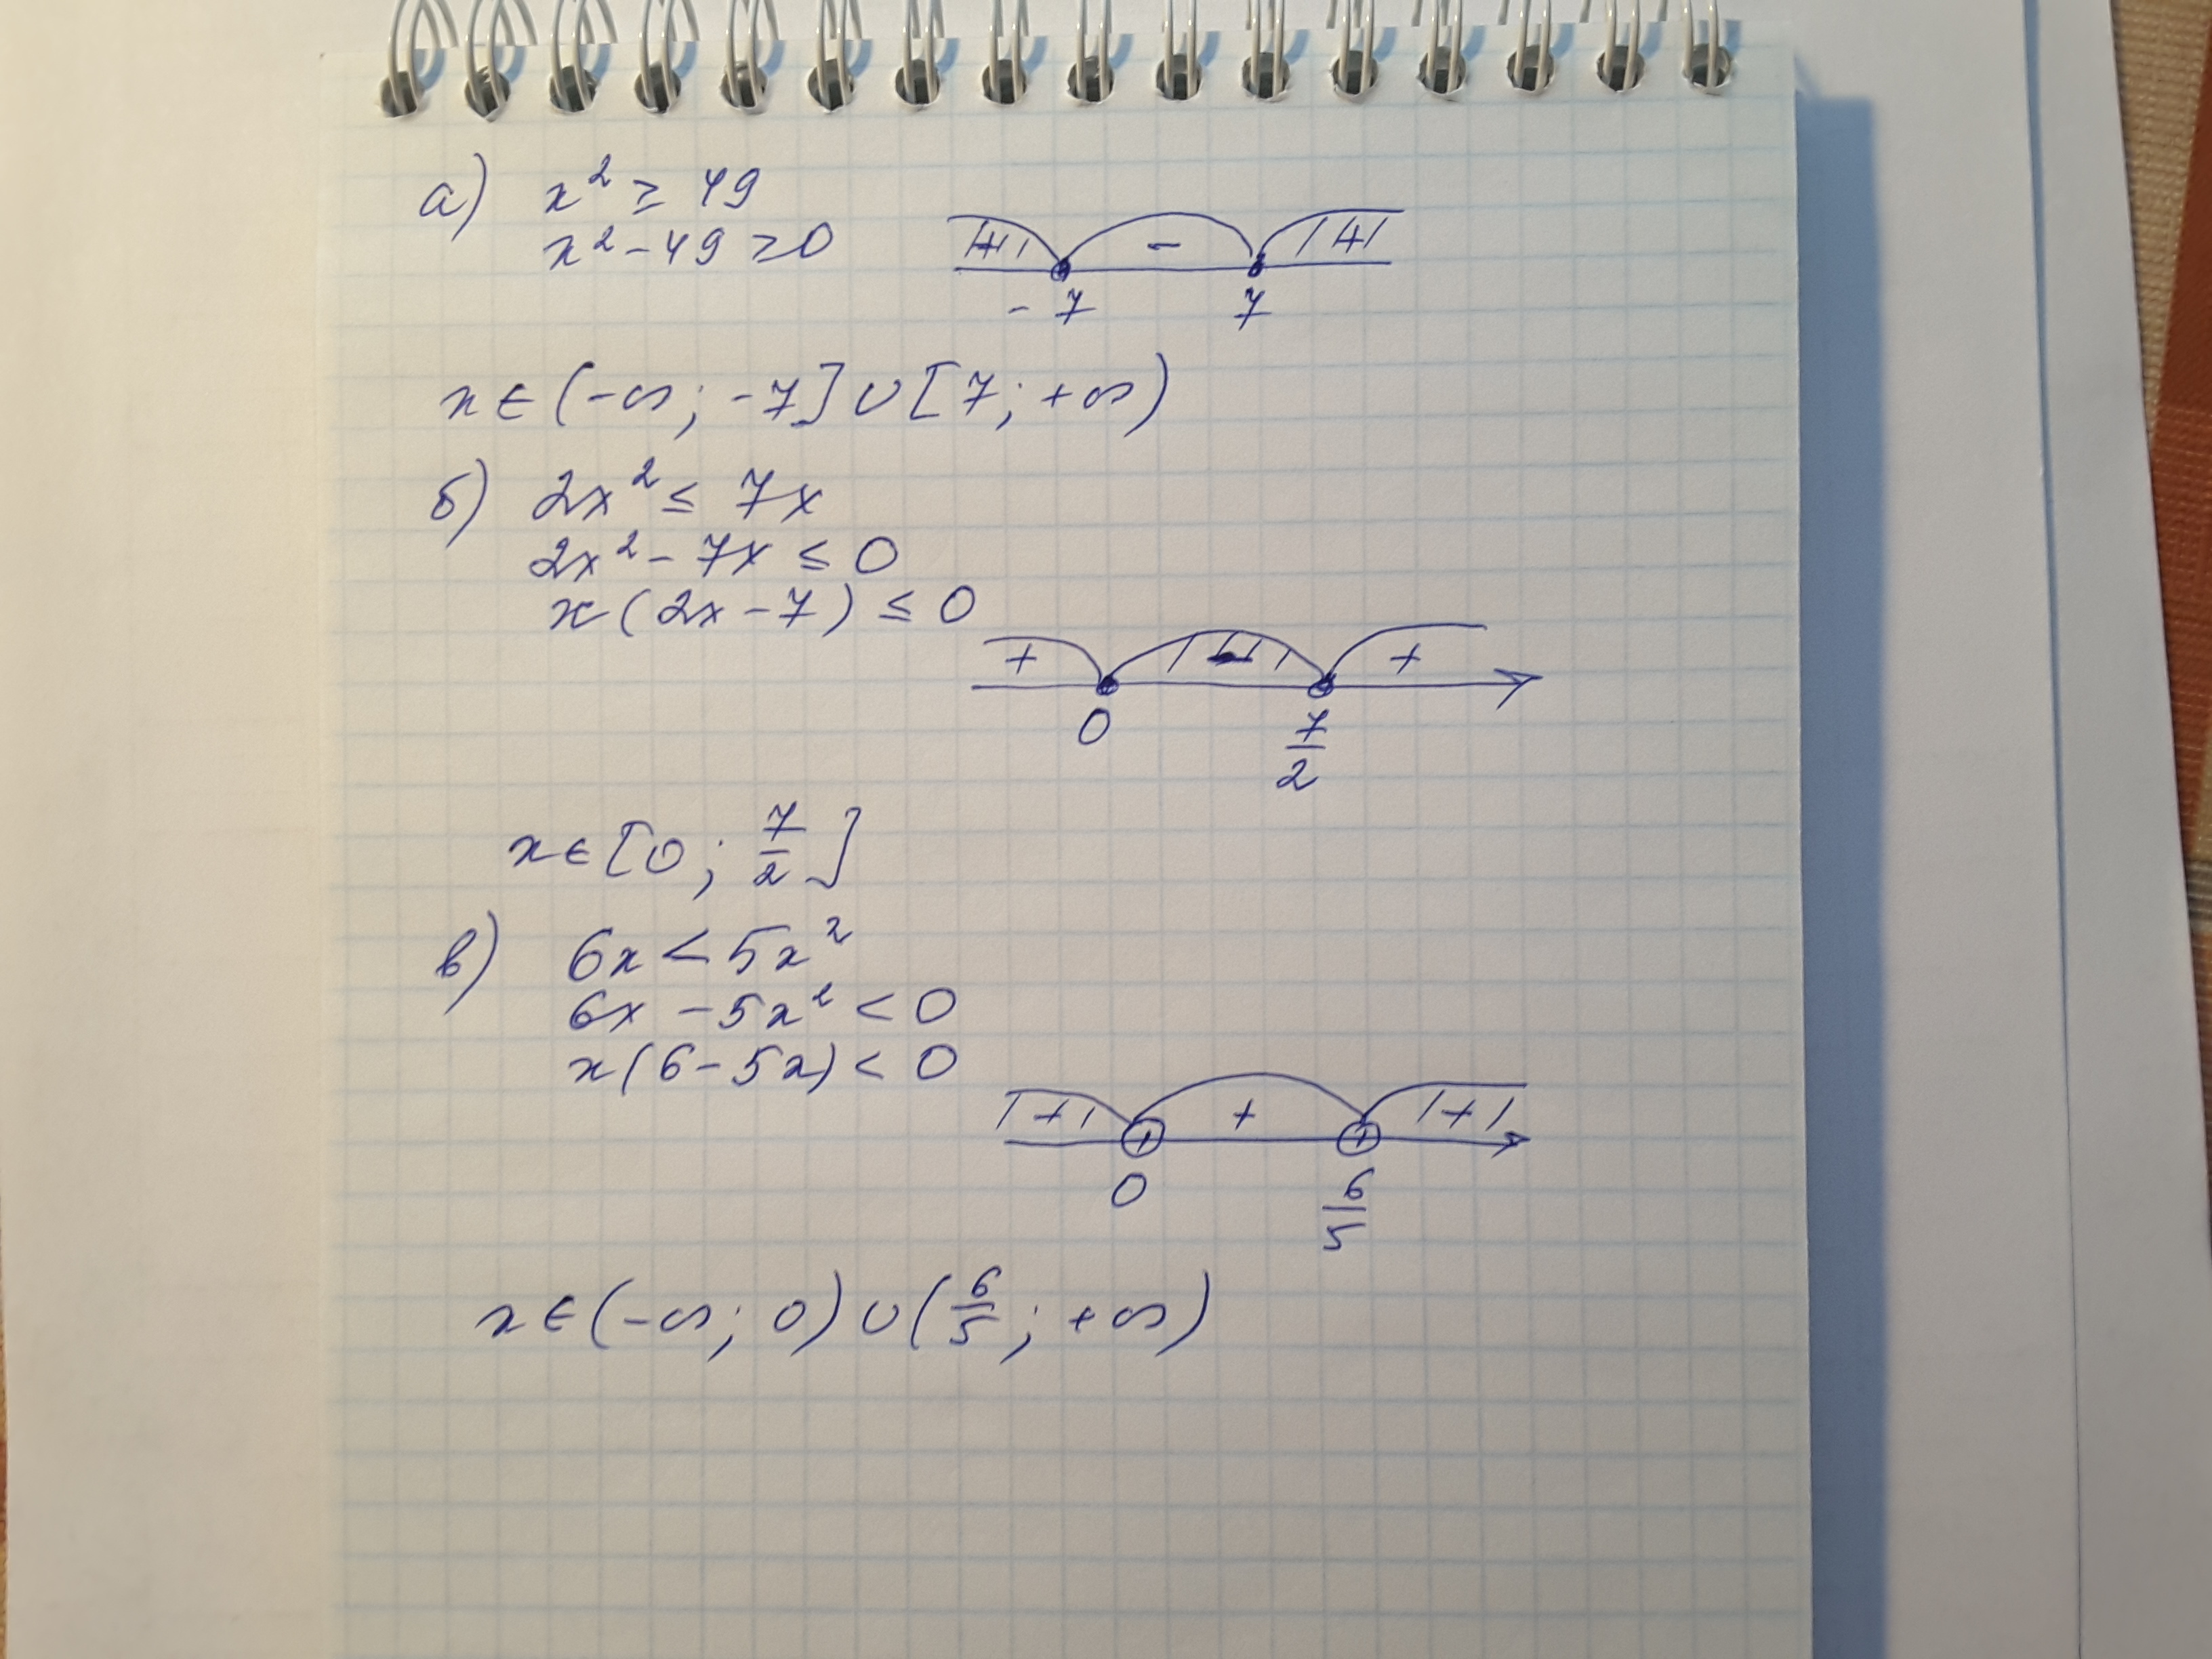 а) x² ≥ 49
x² - 49 ≥ 0
+ - +
-7 7
x ∈ (-∞; -7] ∪ [7; +∞)
б) 2x² ≤ 7x
2x² - 7x ≤ 0
x(2x - 7) ≤ 0
+ - +
0 7/2
x ∈ [0; 7/2]
в) 6x < 5x²
6x - 5x² < 0
x(6 - 5x) < 0
+ + +
0 6/5
x ∈ (-∞; 0) ∪ (6/5; +∞)